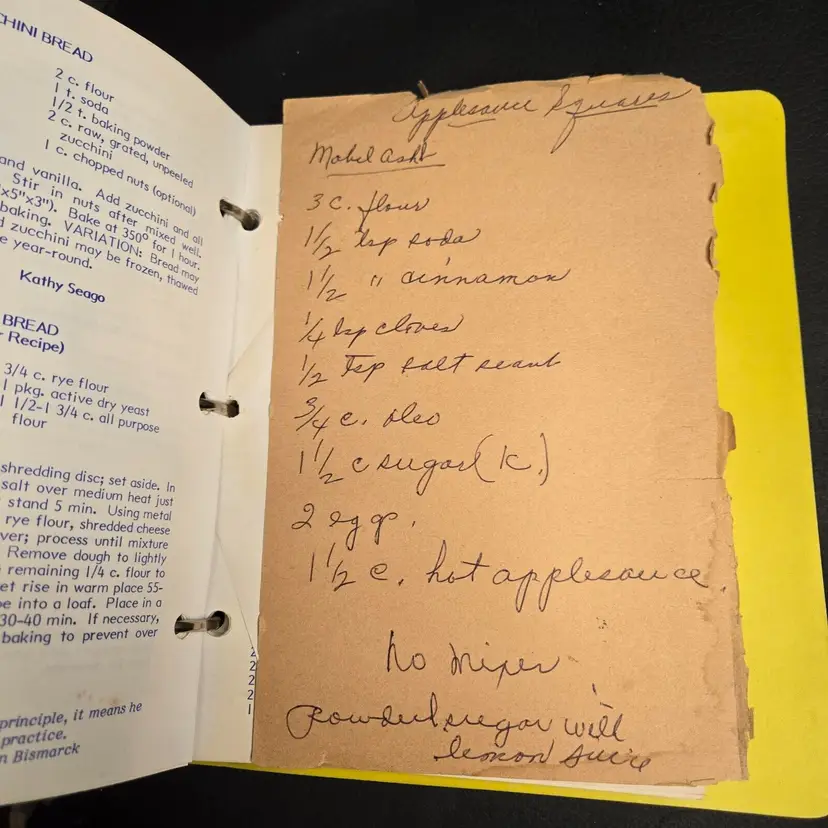 CHINI BREAD
2 c. flour
1 t. soda
1/2 t. baking powder
2 c. raw, grated, unpeeled
zucchini
1 c. chopped nuts (optional)
and vanilla. Add zucchini and all
Stir in nuts after mixed well.
x5"x3"). Bake at 350° for 1 hour.
baking. VARIATION: Bread may
d zucchini may be frozen, thawed
e year-round.
Kathy Seago
BREAD
r Recipe)
3/4 c. rye flour
1 pkg. active dry yeast
1 1/2-1 3/4 c. all purpose
flour
shredding disc; set aside. In
salt over medium heat just
stand 5 min. Using metal
rye flour, shredded cheese
ver; process until mixture
Remove dough to lightly
remaining 1/4 c. flour to
et rise in warm place 55-
pe into a loaf. Place in a
30-40 min. If necessary,
baking to prevent over
principle, it means he
practice.
n Bismarck
2
2
2
2
1
Applesauce Squares
Mabel Ash
3 c. flour
1 1/2 tsp soda
1 1/2 " cinnamon
1/4 tsp cloves
1/2 Tsp salt scant
3/4 c. oleo
1 1/2 c sugar (K.)
2 eggs.
1 1/2 c. hot applesauce.
No mixer
Powdered sugar will
lemon